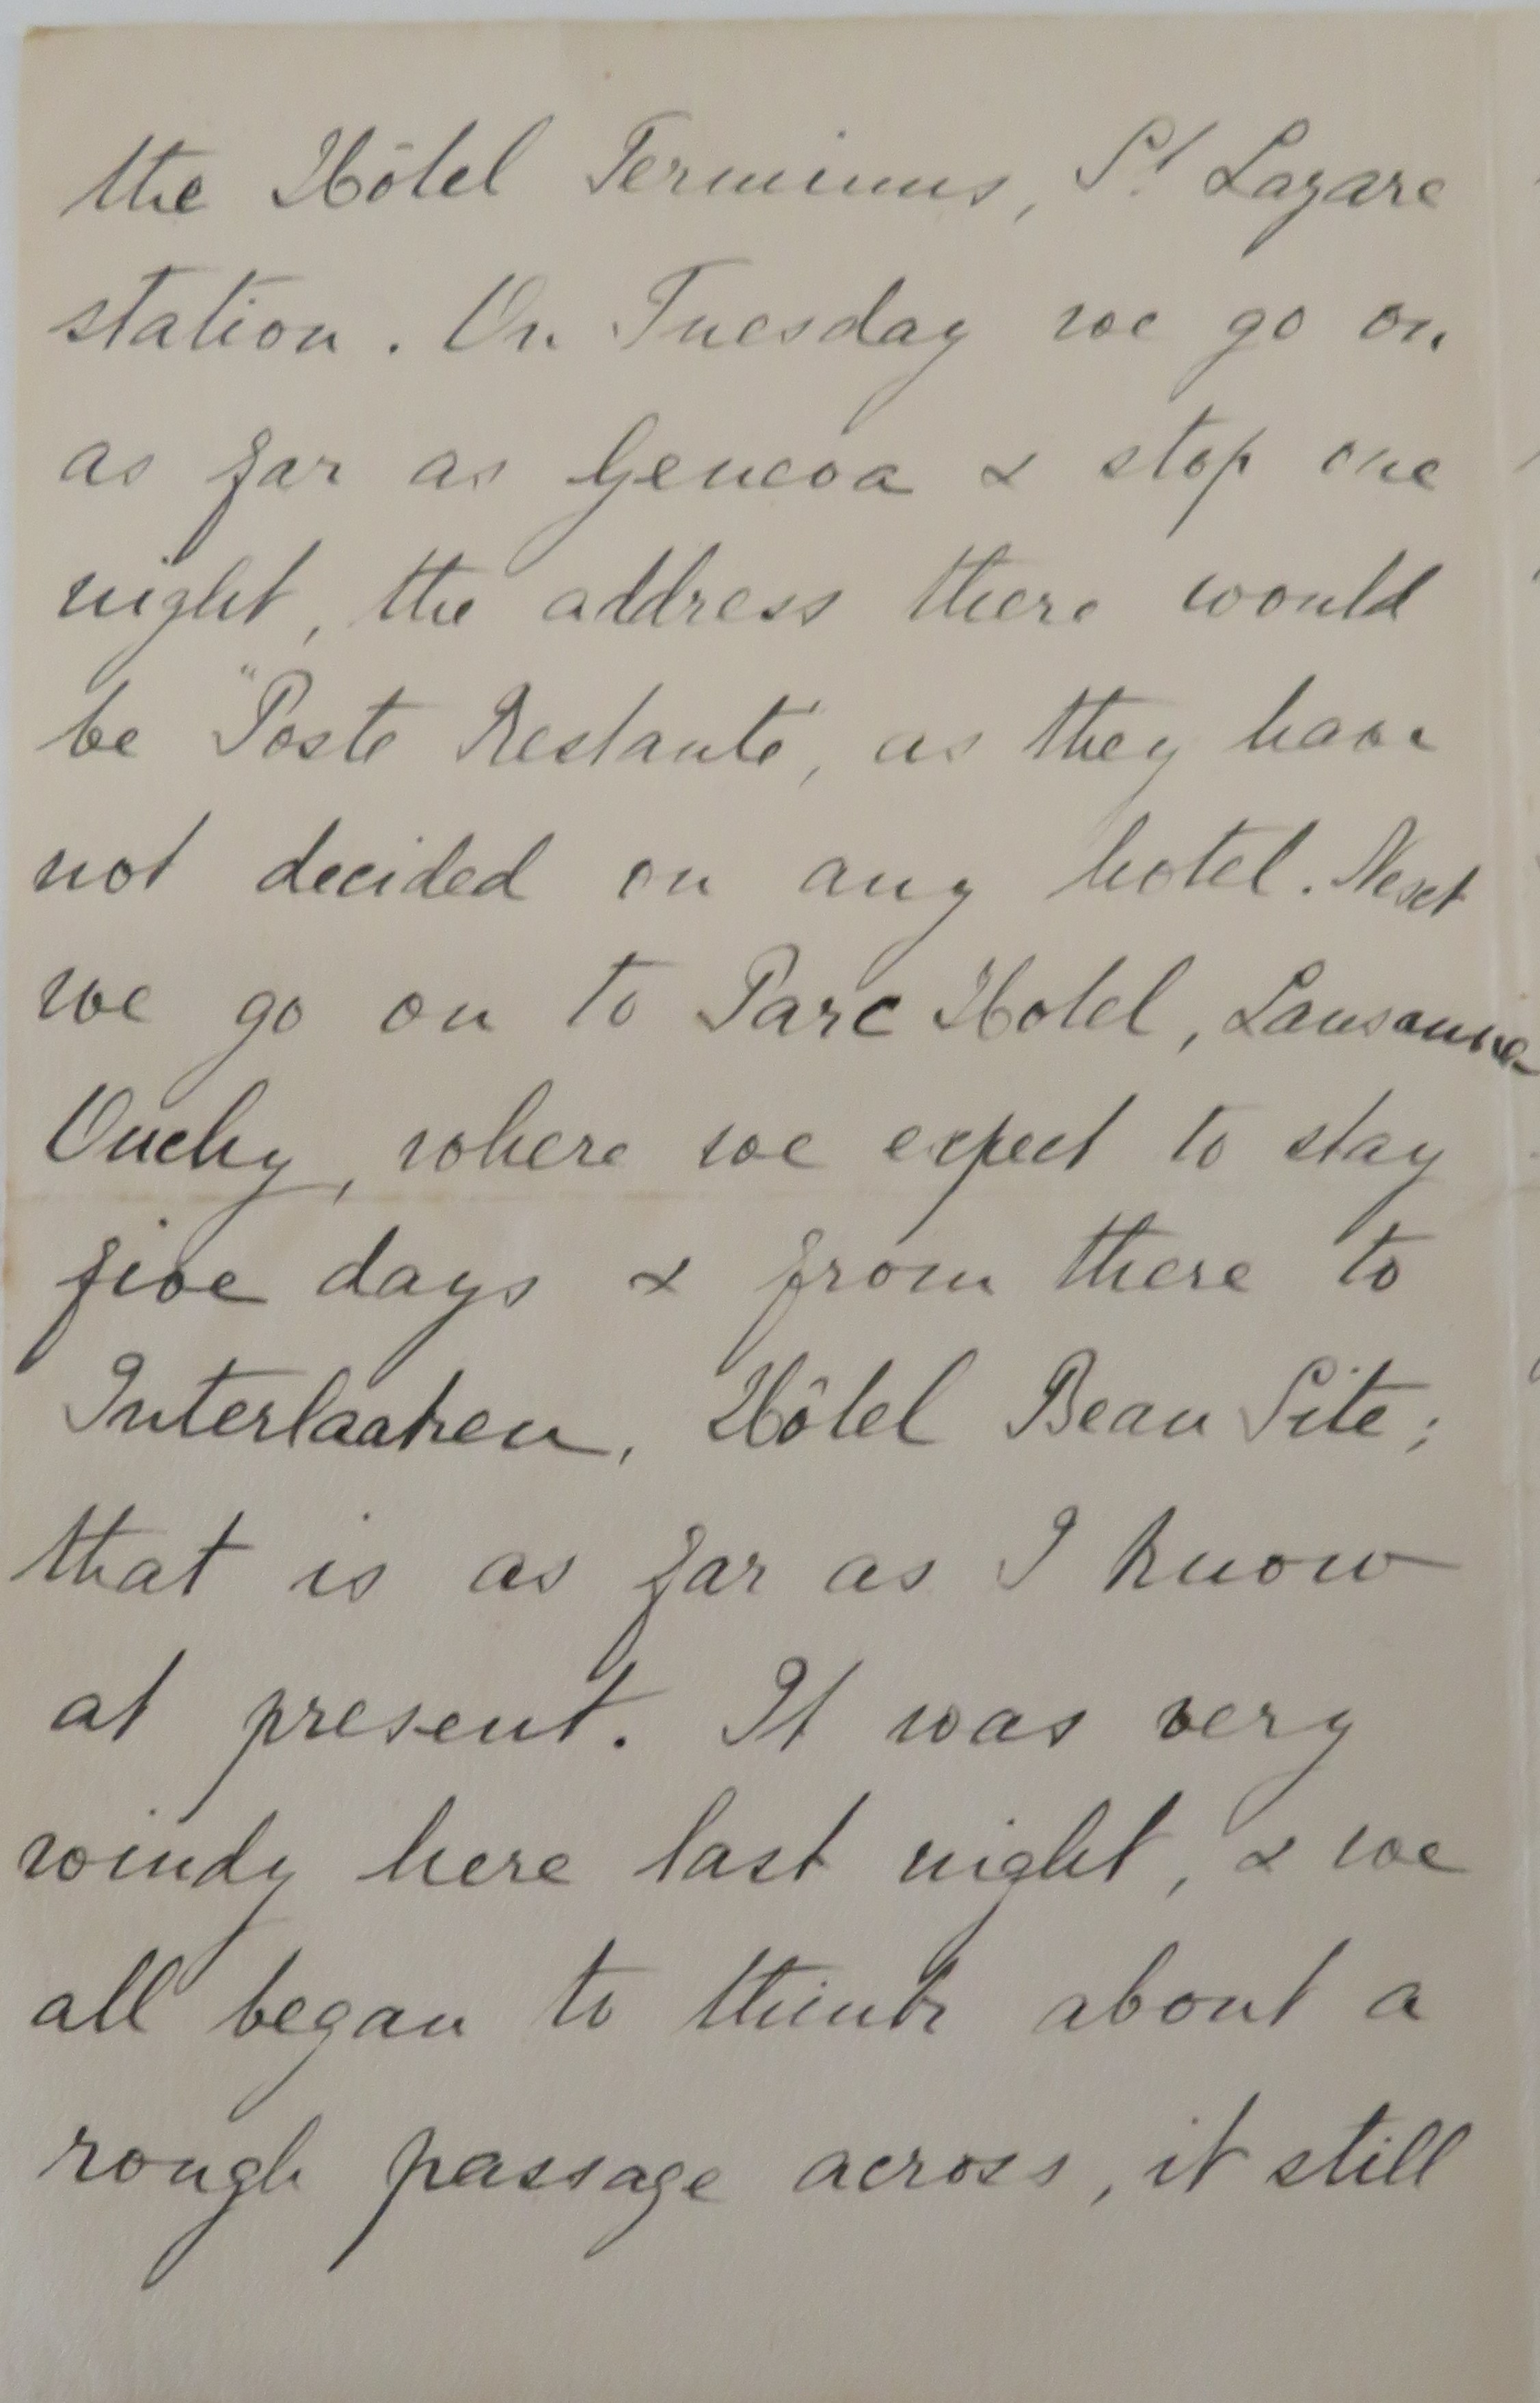 the Hôtel Terminus, St Lazare
station. On Tuesday we go on
as far as Geneoa & stop one
night, the address there would
be "Poste Restante", as they have
not decided on any hotel. Next
we go on to Parc Hotel, Lausanne
Ouchy, where we expect to stay
five days & from there to
Interlaaken, Hôtel Beau Site;
that is as far as I know
at present. It was very
windy here last night, & we
all began to think about a
rough passage across, it still